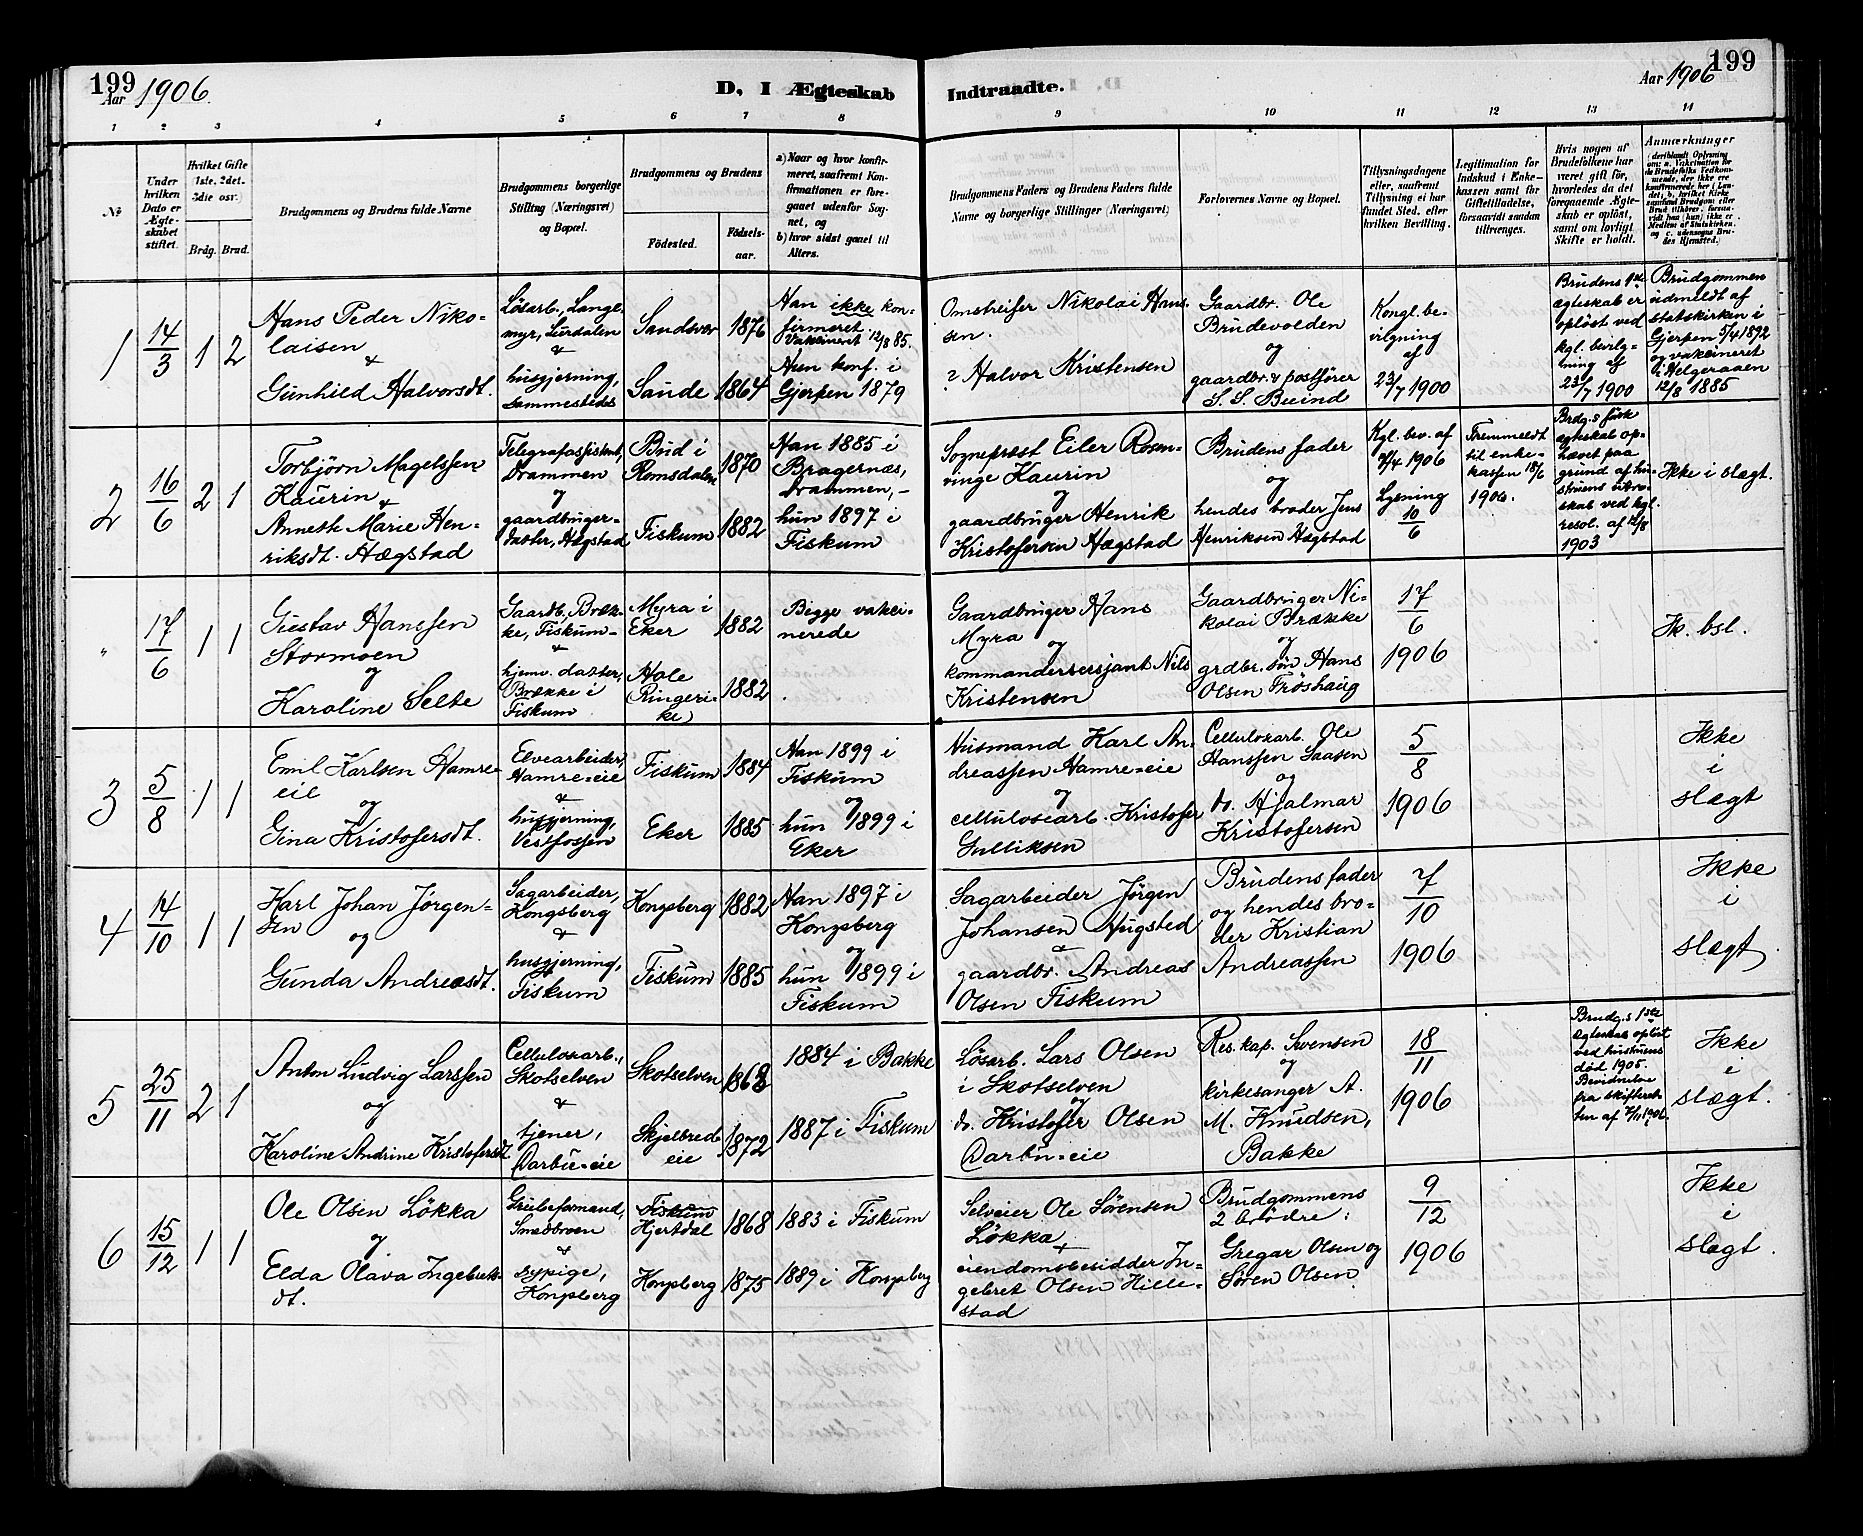 199
Aar 1906.
D, I Ægteskab
Indtraadte.
Aar 1906
199
1 2 3 4 5 6 7 8 9 10 11 12 13 14
No
Under
hvilken
Dato er
Ægte-
skabet
stiftet.
Hvilket Gifte
(1ste, 2det,
3die osv.)
Brdg. Brud.
Brudgommens og Brudens fulde Navne
Brudgommens borgerlige
Stilling (Næringsvei)
og Bopæl.
Brudgommens og Brudens
Födested.
Födsels-
aar.
a) Naar og hvor konfir-
meret, saafremt Kon-
firmationen er fore-
gaaet udenfor Sog-
net, og
b) hvor sidst gaaet til
Alters.
Brudgommens Faders og Brudens Faders fulde
Navne og borgerlige Stillinger (Næringsvei)
Forlovernes Navne og Bopæl.
Tillysningsdagene
eller, saafremt
Tillysning ei har
fundet Sted, efter
hvilken Bevilling.
Legitimation for
Indskud i Enke-
kassen samt for
Giftetilladelse,
forsaavidt saadan
tiltrænges.
Hvis nogen af
Brudefolkene har
været gift för,
hvorledes da det
foregaaende Ægte-
skab er oplöst,
samt om lovligt
Skifte er holdt.
Anmærkninger
(deriblandt Oplysning
om: a. Vakcination for
de Brudefolks Vedkom-
mende, der ikke ere
konfirmerede her i Lan-
det; b. hvilket Kirke-
samfund Brudgom eller
Brud tilhörer, forsaa-
vidt han (hun) ikke er
Medlem af Statskirken,
og c. udensogns Bru-
des Hjemsted.)
1
14/3
1 2
Hans Peder Niko-
laisen
&
Gunhild Halvorsdt.
Løsarb., Lange-
myr, Lurdalen
&
husgjerning,
sammesteds
Sandsvær 1876
Saude 1864
Han ikke kon-
firmeret
Vakcineret 12/8 85.
Hun konf. i
Gjerpen 1879
Omstreifer Nikolai Han-
sen.
? Halvor Kristensen
Gaardbr. Ole
Brudevolden
og
gaardbr. & postfører
S. S. Buind
Kongl. be-
vilgning
af
23/7 1900
Brudens 1ste
ægteskab er
opløst ved
kgl. bevilg-
ning af
23/7 1900
Brudgommen
udmeldt af
statskirken i
Gjerpen 5/4 1892
og vakcineret
i Helgeraaen
12/8 1885
2
16/6
2 1
Torbjörn Magelssen
Kaurin
&
Anneth Marie Hen-
riksdt. Hægstad
Telegrafassistent,
Drammen
og
gaardbruger-
datter, Hægstad
Bud i
Romsdalen 1870
Fiskum 1882
Han 1885 i
Bragernæs,
Drammen, -
hun 1897 i
Fiskum
Sogneprest Eiler Rosen-
vinge Kaurin
og
gaardbruger Henrik
Kristofersen Hægstad
Brudens fader
og
hendes broder Jens
Henriksen Hægstad
Kgl. bev. af
4/4 1906
Lysning
10/6
Fremmeldt
til enke-
kassen 18/6
1906.
Brdg.s første
ægteskab op-
hævet paa
grund af hu-
struens utro-
skab ved kgl.
resol. af 12/8
1903
Ikke i slægt.
"
17/6
1 1
Gustav Hanssen
Stormoen
og
Karoline Selte
Gaardb., Bræk-
ke, Fiskum -
hjemv. datter,
Brække i
Fiskum
Myra i
Eker 1882
Hole
(Ringeri-
ke) 1882
Begge vakci-
nerede
Gaardbruger Hans
Myra
og
kommandersersjant Nils
Kristensen
Gaardbruger Ni-
kolai Brække
og
grdbr. søn Hans
Olsen Trøshaug
17/6
1906
Ik. bsl.
3
5/8
1 1
Emil Karlsen Hamre-
eie
og
Gina Kristofersdt.
Elvearbeider,
Hamre-eie
&
husgjerning,
Vestfossen
Fiskum 1884
Eker 1885
Han 1899 i
Fiskum
og
hun 1899 i
Eker
Husmand Karl An-
dreassen Hamre-eie
og
cellulosearb. Kristofer
Gulliksen
Cellulosearb. Ole
Hanssen Saasen
og
do. Hjalmar
Kristofersen
5/8
1906
Ikke
i
slægt
4
14/10
1 1
Karl Johan Jörgen-
sen
og
Gunda Andreasdt.
Sagarbeider,
Kongsberg
&
husgjerning,
Fiskum
Kongsberg 1882
Fiskum 1885
Han 1897 i
Kongsberg
og
hun 1899 i
Fiskum
Sagarbeider Jörgen
Johansen Haugsted
&
gaardbr. Andreas
Olsen Fiskum
Brudens fader
og hendes bro-
der Kristian
Andreassen
7/10
1906
Ikke
i
slægt
5
25/11
2 1
Anton Ludvig Larssen
og
Karoline Andrine Kristofersdt
Cellulosearb.,
Skotselven
&
tjener,
Darbu-eie
Skotselven 1868
Skjelbred-
eie 1872
1884 i Bakke
1887 i Fiskum
Løsarb. Lars Olsen
i Skotselven
og
do. Kristofer Olsen
Darbu-eie
Res. kap. Svensen
og
kirkesanger A.
M. Knudsen,
Bakke
18/11
1906
Brudg.s 1ste
ægteskab opløst
ved hustruens
død 1905.
Bevidnelse
fra skifteret-
ten af 7/11 1906.
Ikke
i
slægt.
6
15/12
1 1
Ole Olsen Lökka
og
Elda Olava Ingebrets-
dt.
Grubeformand,
Smedbroen
&
sypige,
Kongsberg
Fiskum
Hjertdal 1868
Kongsberg 1875
1883 i Fiskum
1889 i Kongsberg
Selveier Ole Sørensen
Lökka
&
eiendomsbesidder In-
gebret Olsen Hille-
stad
Brudgommens
2 brödre:
Gregar Olsen og
Søren Olsen
9/12
1906
Ikke
i
slægt.